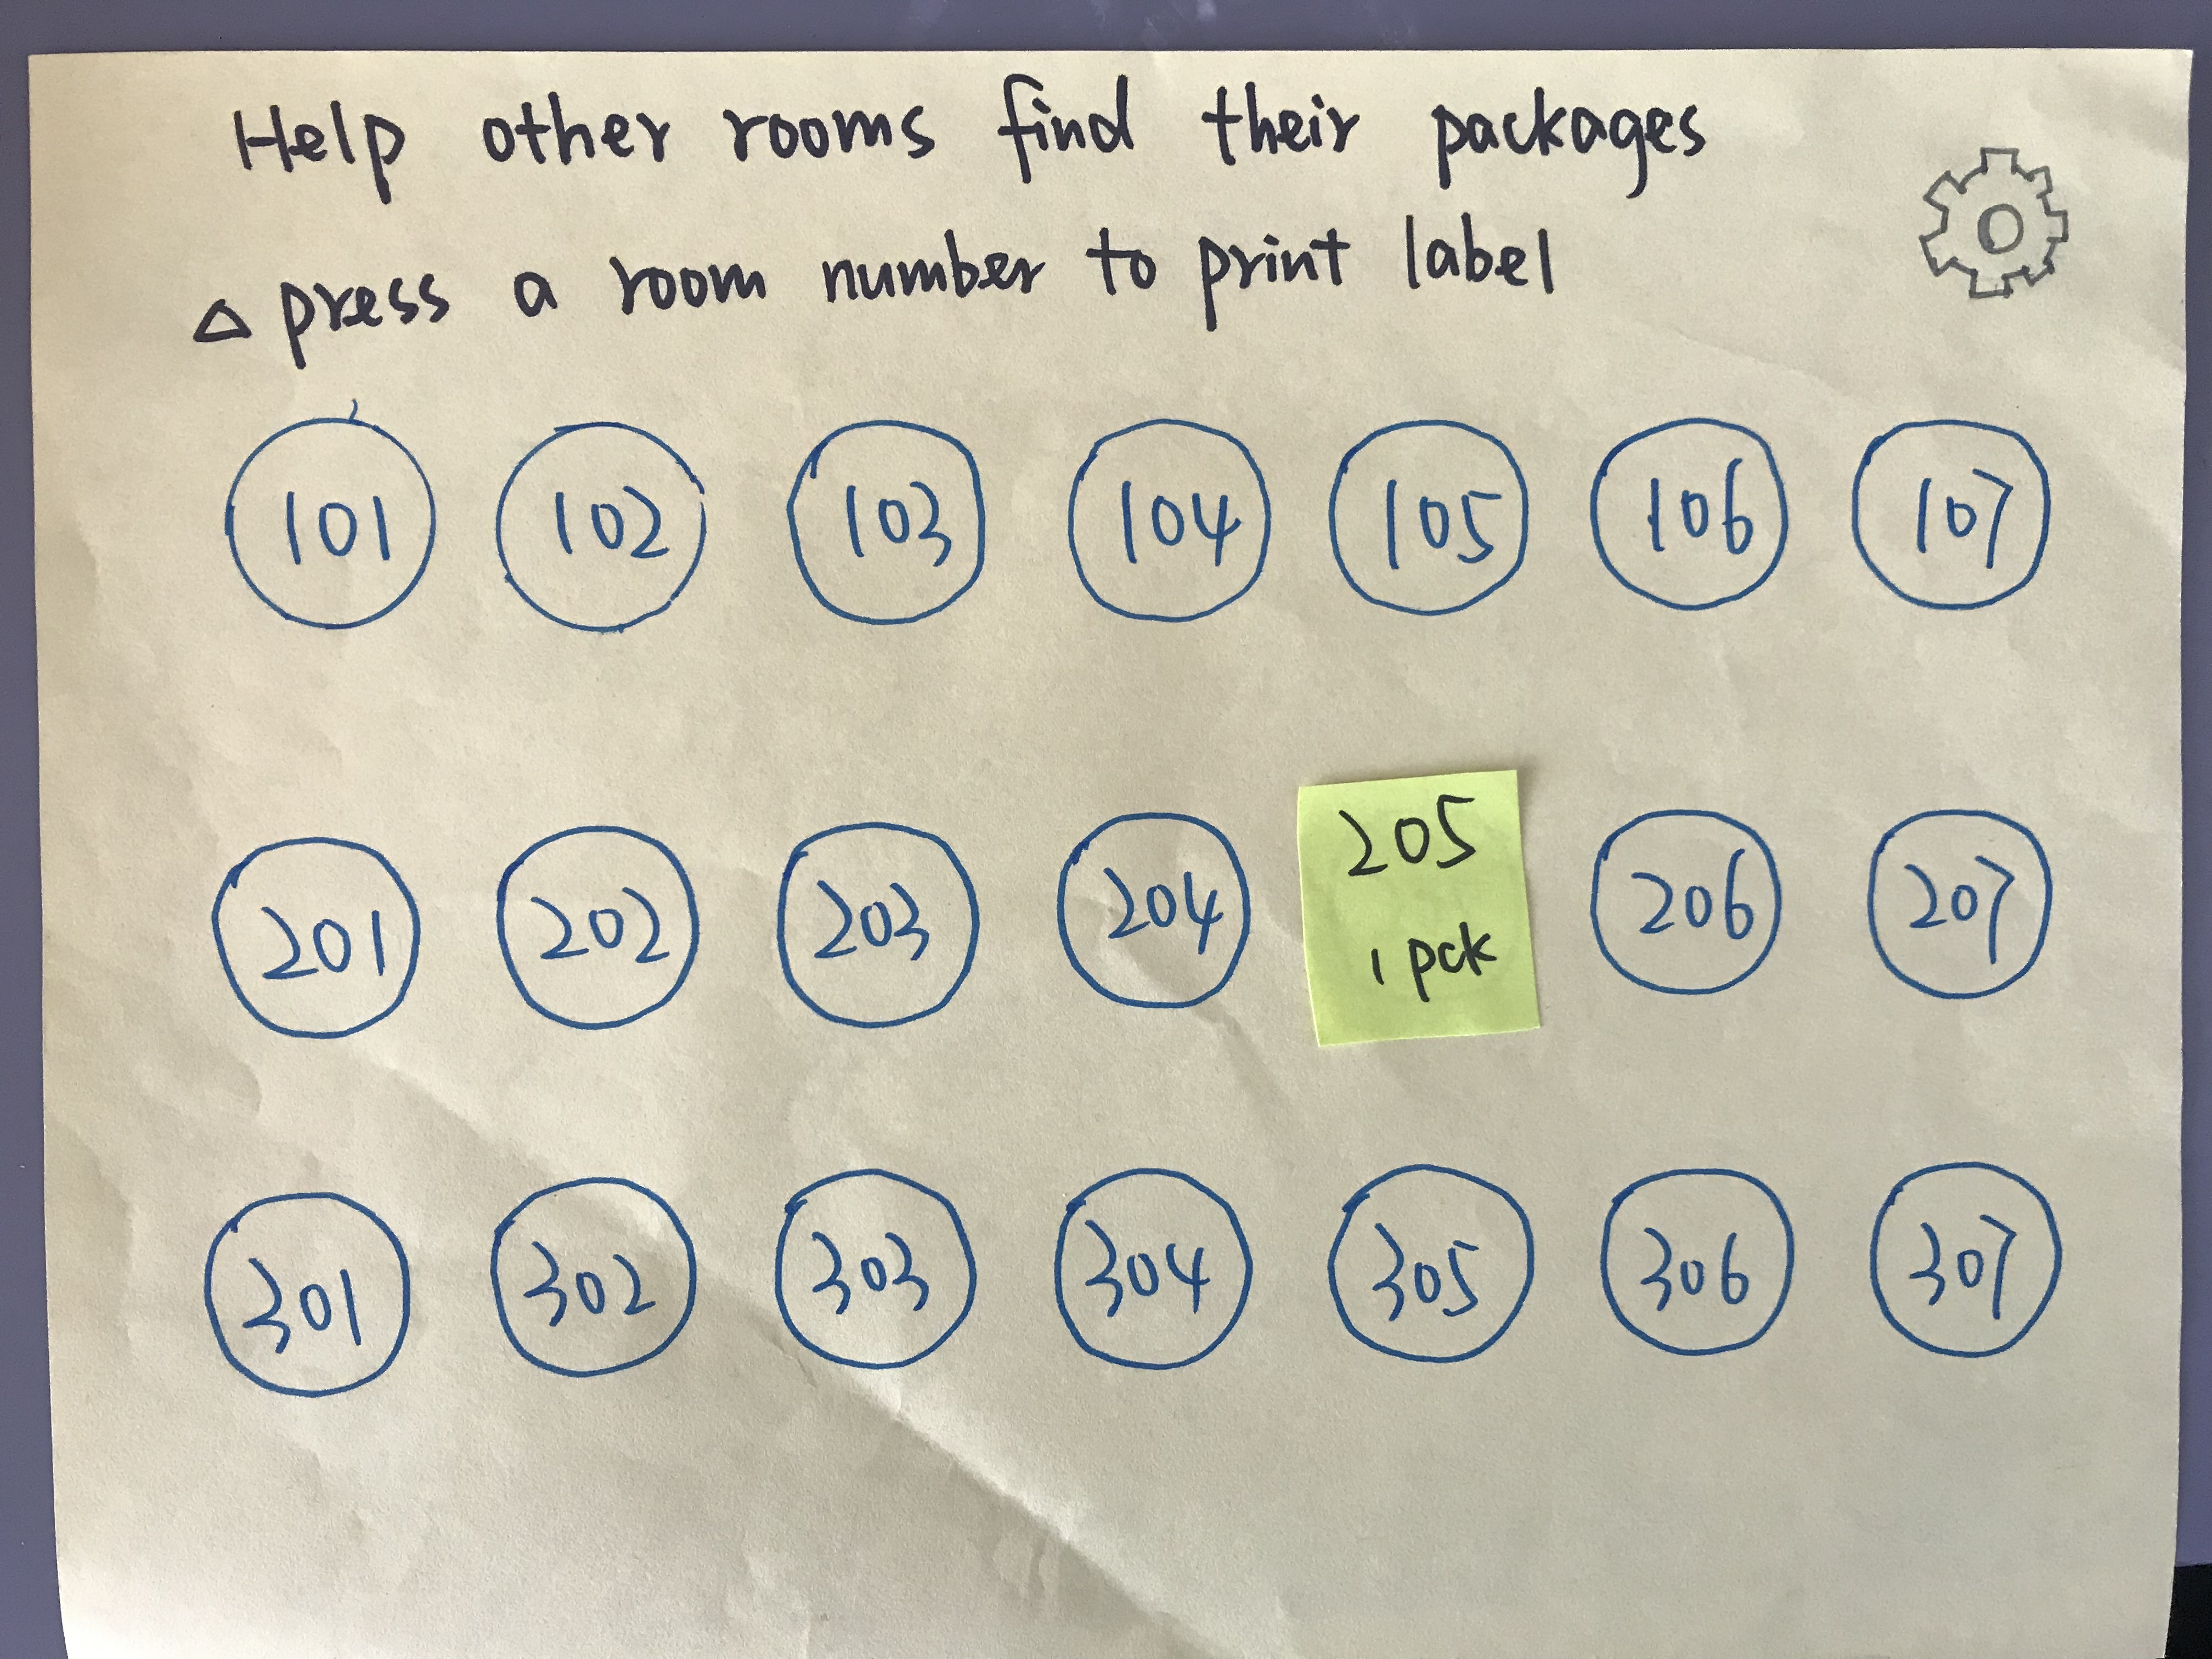 Help other rooms find their packages
△ press a room number to print label
101 102 103 104 105 106 107
201 202 203 204 205 206 207
1 pck
301 302 303 304 305 306 307